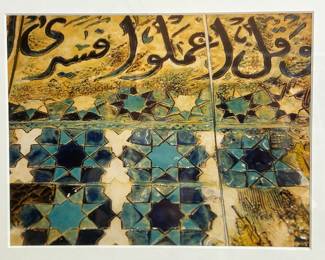 وقل اعملوا فسيرى